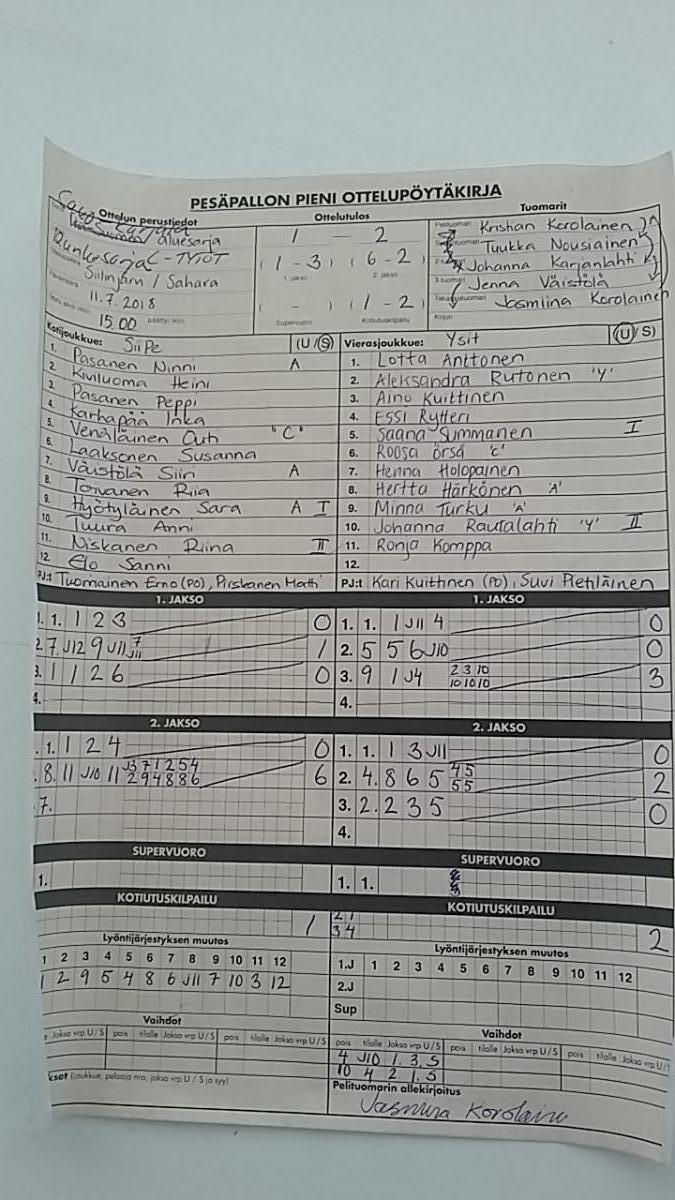 PESÄPALLON PIENI OTTELUPÖYTÄKIRJA
Ottelun perustiedot
Ottelutulos
Tuomarit
aluesarja
C-TYTÖT
Siilinjärvi / Sahara
11.7.2018
15.00
1 — 2
( 1 - 3 ) ( 6 - 2 )
1. jakso 2. jakso
( - ) ( 1 - 2 )
Supervuoro Kotiutuskilpailu
Kristian Korolainen
Tuukka Nousiainen
Johanna Karjanlahti
Jenna Väistölä
Jasmiina Korolainen
Kotijoukkue: SiiPe (U/S)
1. Pasanen Ninni A
2. Kiviluoma Heini
3. Pasanen Peppi
4. Karhapää Inka
5. Venäläinen Outi "C"
6. Laaksonen Susanna
7. Väistölä Siiri A
8. Toivanen Riia
9. Hyötyläinen Sara A I
10. Tuura Anni
11. Niskanen Riina II
12. Elo Sanni
PJ:t Tuomainen Erno (PO), Piiskanen Matti
Vierasjoukkue: Ysit (U/S)
1. Lotta Anttonen
2. Aleksandra Rutonen 'Y'
3. Aino Kuittinen
4. Essi Rytteri
5. Saana Summanen I
6. Roosa Örså 'C'
7. Henna Holopainen
8. Hertta Härkönen 'A'
9. Minna Turku 'A'
10. Johanna Rautalahti 'Y' II
11. Ronja Komppa
12.
PJ:t Kari Kuittinen (PO), Suvi Pietiläinen
1. JAKSO
1. 1. 1 2 3 0
2. 7. J12 9 J11 7 J11 1
3. 1 1 2 6 0
4.
1. JAKSO
1. 1. 1 J11 4 0
2. 5 5 6 J10 0
3. 9 1 J4 2 3 10 3
10 10 10
4.
2. JAKSO
1. 1 2 4 0
8. 11 J10 11 J3 7 1 2 5 4 6
2 9 4 8 8 6
7.
2. JAKSO
1. 1. 1 3 J11 0
2. 4. 8 6 5 4 5 2
5 5
3. 2. 2 3 5 0
4.
SUPERVUORO
1.
SUPERVUORO
1. 1.
KOTIUTUSKILPAILU
1
KOTIUTUSKILPAILU
2 1
3 4 2
Lyöntijärjestyksen muutos
1 2 3 4 5 6 7 8 9 10 11 12
1 2 9 5 4 8 6 J11 7 10 3 12
Lyöntijärjestyksen muutos
1.J 1 2 3 4 5 6 7 8 9 10 11 12
2.J
Sup
Vaihdot
Jakso vrp U/S pois tilalle Jakso vrp U/S pois tilalle Jakso vrp U/S
Vaihdot
pois tilalle Jakso vrp U/S pois tilalle Jakso vrp U/S pois tilalle Jakso vrp U/S
4 J10 1. 3. S
10 4 2 1. S
(joukkue, pelaaja nro, jakso vrp U / S ja syy)
Pelituomarin allekirjoitus